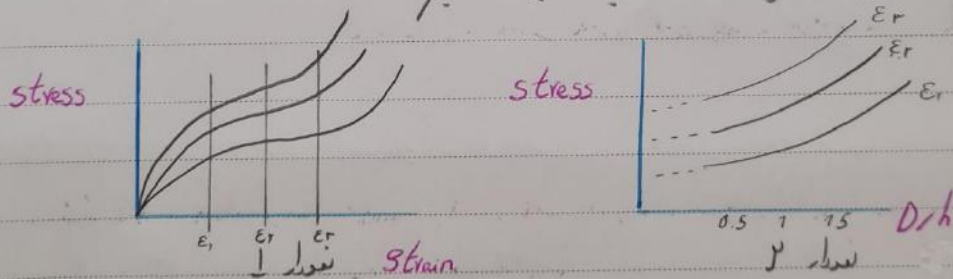 stress
ε۱ ε۲ ε۳
نمودار 1
Strain
stress
ε۳
ε۲
ε۱
0.5 1 15 D/h
نمودار ۲